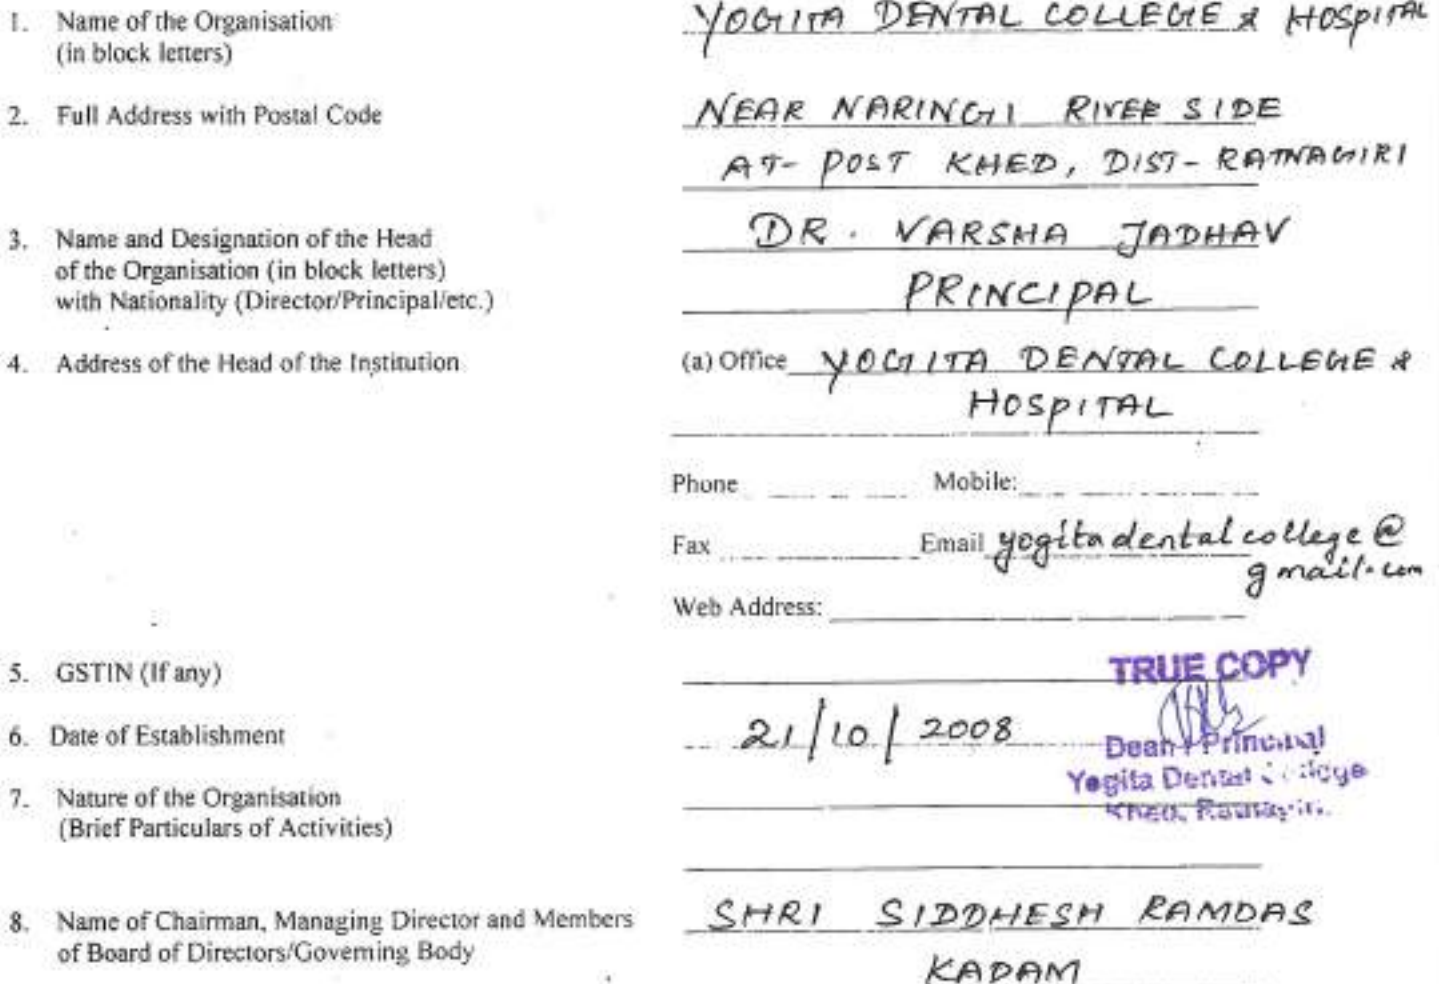 1. Name of the Organisation YOGITA DENTAL COLLEGE & HOSPITAL
(in block letters)
2. Full Address with Postal Code NEAR NARINGI RIVER SIDE
AT- POST KHED, DIST- RATNAGIRI
3. Name and Designation of the Head DR. VARSHA JADHAV
of the Organisation (in block letters)
with Nationality (Director/Principal/etc.) PRINCIPAL
4. Address of the Head of the Institution (a) Office YOGITA DENTAL COLLEGE &
HOSPITAL
Phone Mobile:
Fax Email yogitadentalcollege@
gmail.com
Web Address:
5. GSTIN (If any) TRUE COPY
6. Date of Establishment 21/10/2008 Dean / Principal
Yogita Dental College
7. Nature of the Organisation Khed, Ratnagiri.
(Brief Particulars of Activities)
8. Name of Chairman, Managing Director and Members SHRI SIDDHESH RAMDAS
of Board of Directors/Governing Body KADAM